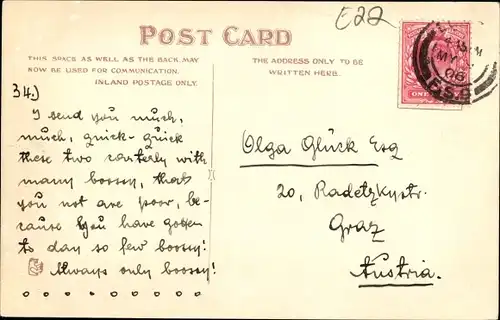 E22
POST CARD
THIS SPACE AS WELL AS THE BACK MAY
NOW BE USED FOR COMMUNICATION.
INLAND POSTAGE ONLY.
THE ADDRESS ONLY TO BE
WRITTEN HERE.
34)
I send you much,
much, quick-quick
these two carterly with
many boossy, that
you not are poor, be-
cause you have gotten
to day so few boossy!
Always only boossy!
Olga Glück Esq
20, Radetzkystr.
Graz
Austria.
MY
06
ONE